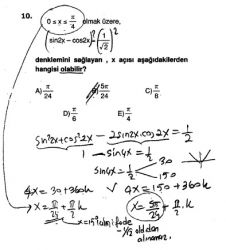 10. 0 ≤ x ≤ π/4 olmak üzere,
(sin2x – cos2x)² = (1/√2)²
denklemini sağlayan , x açısı aşağıdakilerden
hangisi olabilir?
A) π/24 B) 5π/24 C) π/8
D) π/6 E) π/4
sin²2x + cos²2x – 2sin2x.cos2x = 1/2
1 – sin4x = 1/2
sin4x = 1/2 30 150
4x = 30 + 360k ✓ 4x = 150 + 360k
x = π/24 + π/2 k x = 5π/24 + π/2 . k
x = 15° ifade
-1/2 olduğundan
alınamaz.